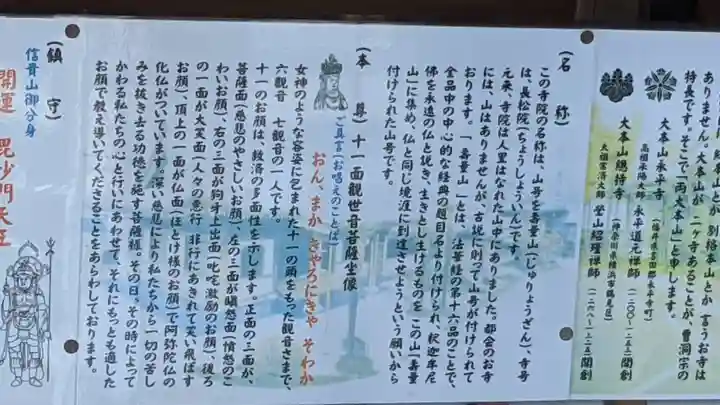 ありません。大本山が二ヶ寺あることが、曹洞宗の
特長です。そこで「両大本山」と申します。
大本山永平寺
(福井県吉田郡永平寺町)
高祖承陽大師 永平道元禅師
(一二〇〇〜一二五三)開創
大本山總持寺
(神奈川県横浜市鶴見区)
太祖常済大師 瑩山紹瑾禅師
開創
(名 称)
この寺院の名称は、山号を壽量山(じゅりょうざん)、寺号
は、長松院(ちょうしょういん)です。
元来、寺院は人里はなれた山中にありました。都会のお寺
には、山はありませんが、古説に則って山号が付けられて
おります。「壽量山」とは、法華経の第十六品のことで、
全品中の中心的な経典の題目名より付けられ、釈迦牟尼
佛を永遠の仏と説き、生きとし生けるものをこの山「壽量
山」に集め、仏と同じ境涯に到達させようという願いから
付けられた山号です。
(本 尊)十一面観世音菩薩坐像
ご真言(お唱えのことば)
おん、まか きゃろにきゃ そわか
女神のような容姿に包まれた十一の頭をもった観音さまで、
六観音 七観音の一人です。
十一のお顔は、救済の多面性を示します。正面の三面が、
菩薩面(慈悲のやさしいお顔)、左の三面が瞋怒面(憤怒のこ
わいお顔)、右の三面が狗牙上出面(叱咤激励のお顔)、後ろ
の一面が大笑面(人々の悪行 非行にあきれて笑い飛ばす
お顔)頂上の一面が仏面(ほとけ様のお顔)で阿弥陀仏の
化仏がついています。深い慈悲により私たちから一切の苦し
みを抜き去る功徳を施す菩薩様。その日、その時によって
かわる私たちの心と行いにあわせて、それにもっとも適した
お顔で教え導いてくださることをあらわしております。
(鎮 守)
信貴山御分身
開運 毘沙門天王